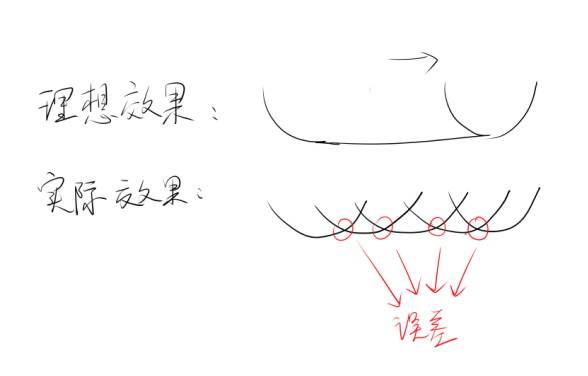 理想效果：
实际效果：
误差